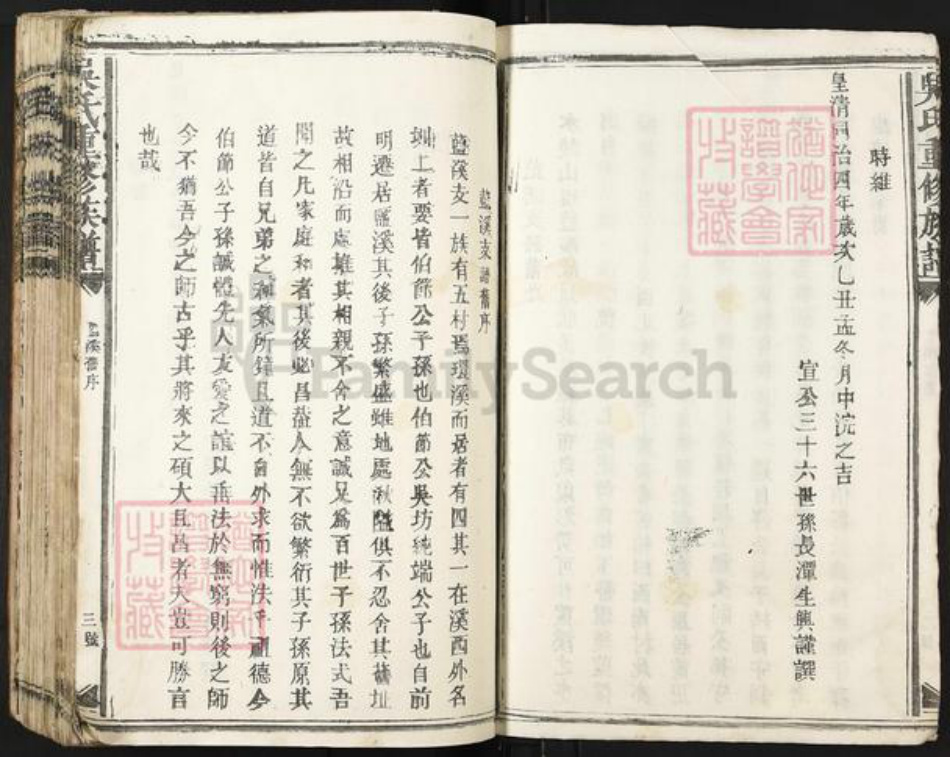 吳氏重修族譜
時維
皇清同治四年歲次乙丑孟冬月中浣之吉
宣公三十六世孫長潭生興謹譔
藍溪支譜舊序
藍溪支一族有五村焉環溪而居者有四其一在溪西外名
坳上者要皆伯節公子孫也伯節公吳坊純端公子也自前
明遷居藍溪其後子孫繁盛雖地處湫隘俱不忍舍其舊址
故相沿而處推其相親不舍之意誠足為百世子孫法式吾
聞之凡家庭和者其後必昌蓋人無不欲繁衍其子孫原其
道皆自兄弟之和氣所鍾且道不自外求而惟法乎祖德今
伯節公子孫誠體先人友愛之誼以垂法於無窮則後之師
今不猶吾今之師古乎其將來之碩大且昌者夫豈可勝言
也哉
吳氏重修族譜
溪舊序
三號
FamilySearch